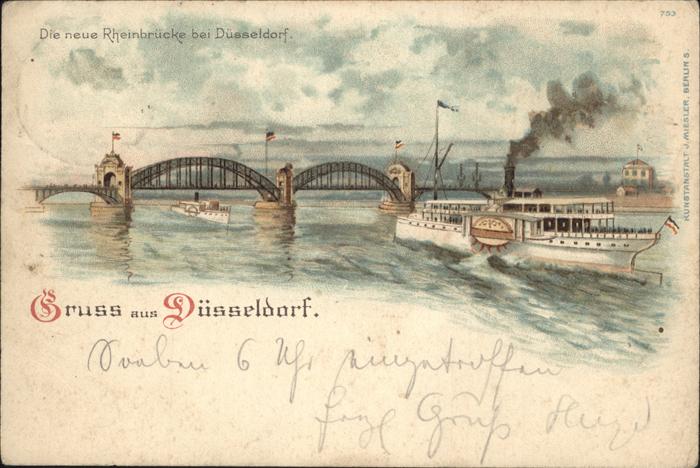 753
Die neue Rheinbrücke bei Düsseldorf.
KUNSTANSTALT J. MIESLER, BERLIN S.
Gruss aus Düsseldorf.
Soeben 6 Uhr eingetroffen
Gruß